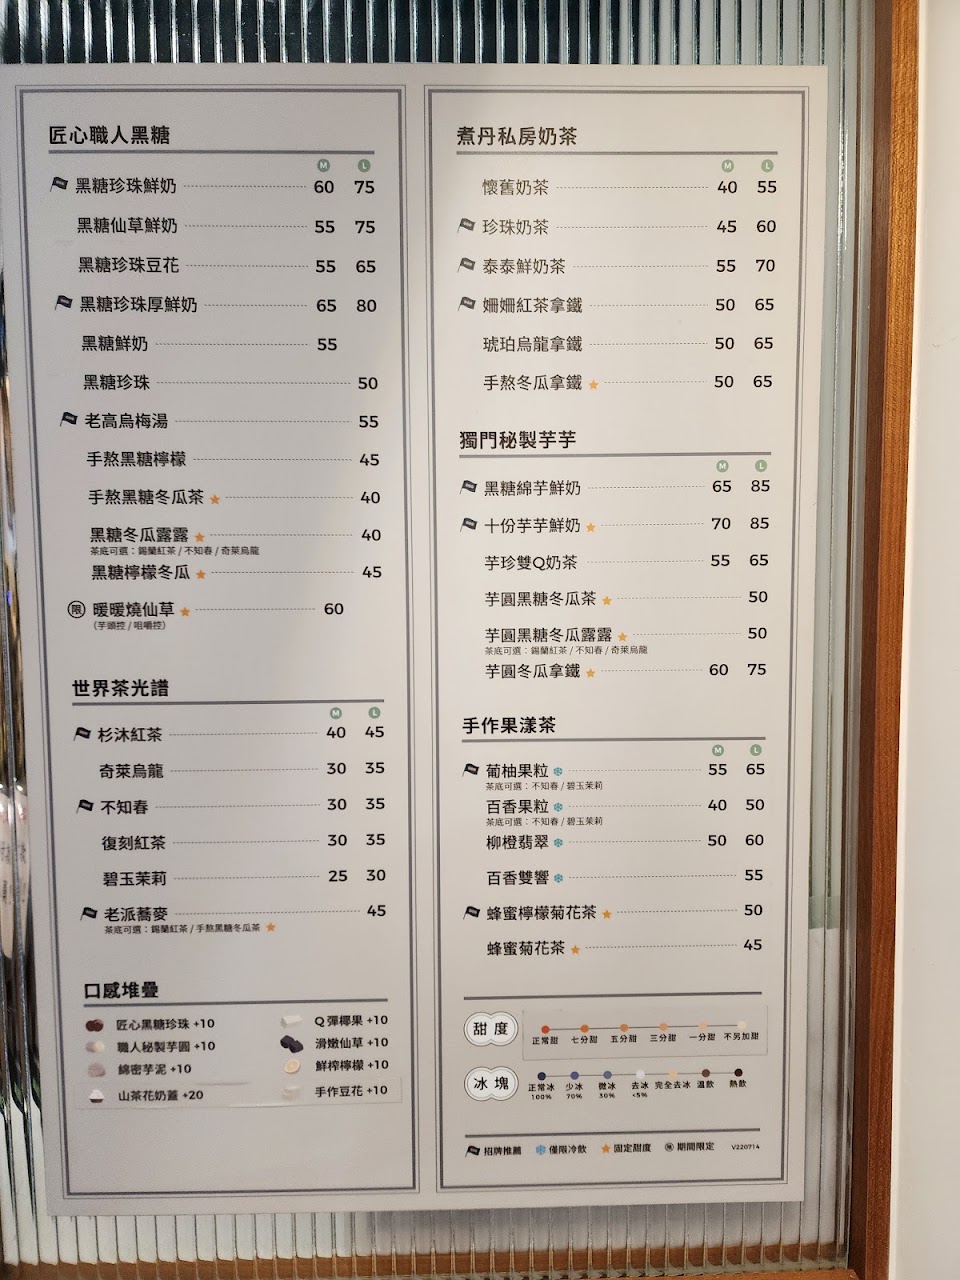 匠心職人黑糖
M L
黑糖珍珠鮮奶 60 75
黑糖仙草鮮奶 55 75
黑糖珍珠豆花 55 65
黑糖珍珠厚鮮奶 65 80
黑糖鮮奶 55
黑糖珍珠 50
老高烏梅湯 55
手熬黑糖檸檬 45
手熬黑糖冬瓜茶 40
黑糖冬瓜露露 40
茶底可選：錫蘭紅茶 / 不知春 / 奇萊烏龍
黑糖檸檬冬瓜 45
限 暖暖燒仙草 60
（芋頭控 / 咀嚼控）
世界茶光譜
M L
杉沐紅茶 40 45
奇萊烏龍 30 35
不知春 30 35
復刻紅茶 30 35
碧玉茉莉 25 30
老派蕎麥 45
茶底可選：錫蘭紅茶 / 手熬黑糖冬瓜茶
口感堆疊
匠心黑糖珍珠 +10 Q彈椰果 +10
職人秘製芋圓 +10 滑嫩仙草 +10
綿密芋泥 +10 鮮榨檸檬 +10
山茶花奶蓋 +20 手作豆花 +10
煮丹私房奶茶
M L
懷舊奶茶 40 55
珍珠奶茶 45 60
泰泰鮮奶茶 55 70
姍姍紅茶拿鐵 50 65
琥珀烏龍拿鐵 50 65
手熬冬瓜拿鐵 50 65
獨門秘製芋芋
M L
黑糖綿芋鮮奶 65 85
十份芋芋鮮奶 70 85
芋珍雙Q奶茶 55 65
芋圓黑糖冬瓜茶 50
芋圓黑糖冬瓜露露 50
茶底可選：錫蘭紅茶 / 不知春 / 奇萊烏龍
芋圓冬瓜拿鐵 60 75
手作果漾茶
M L
葡柚果粒 55 65
茶底可選：不知春 / 碧玉茉莉
百香果粒 40 50
茶底可選：不知春 / 碧玉茉莉
柳橙翡翠 50 60
百香雙響 55
蜂蜜檸檬菊花茶 50
蜂蜜菊花茶 45
甜度 正常甜 七分甜 五分甜 三分甜 一分甜 不另加甜
冰塊 正常冰 少冰 微冰 去冰 完全去冰 溫飲 熱飲
100% 70% 30% <5%
招牌推薦 僅限冷飲 固定甜度 限 期間限定 V220714